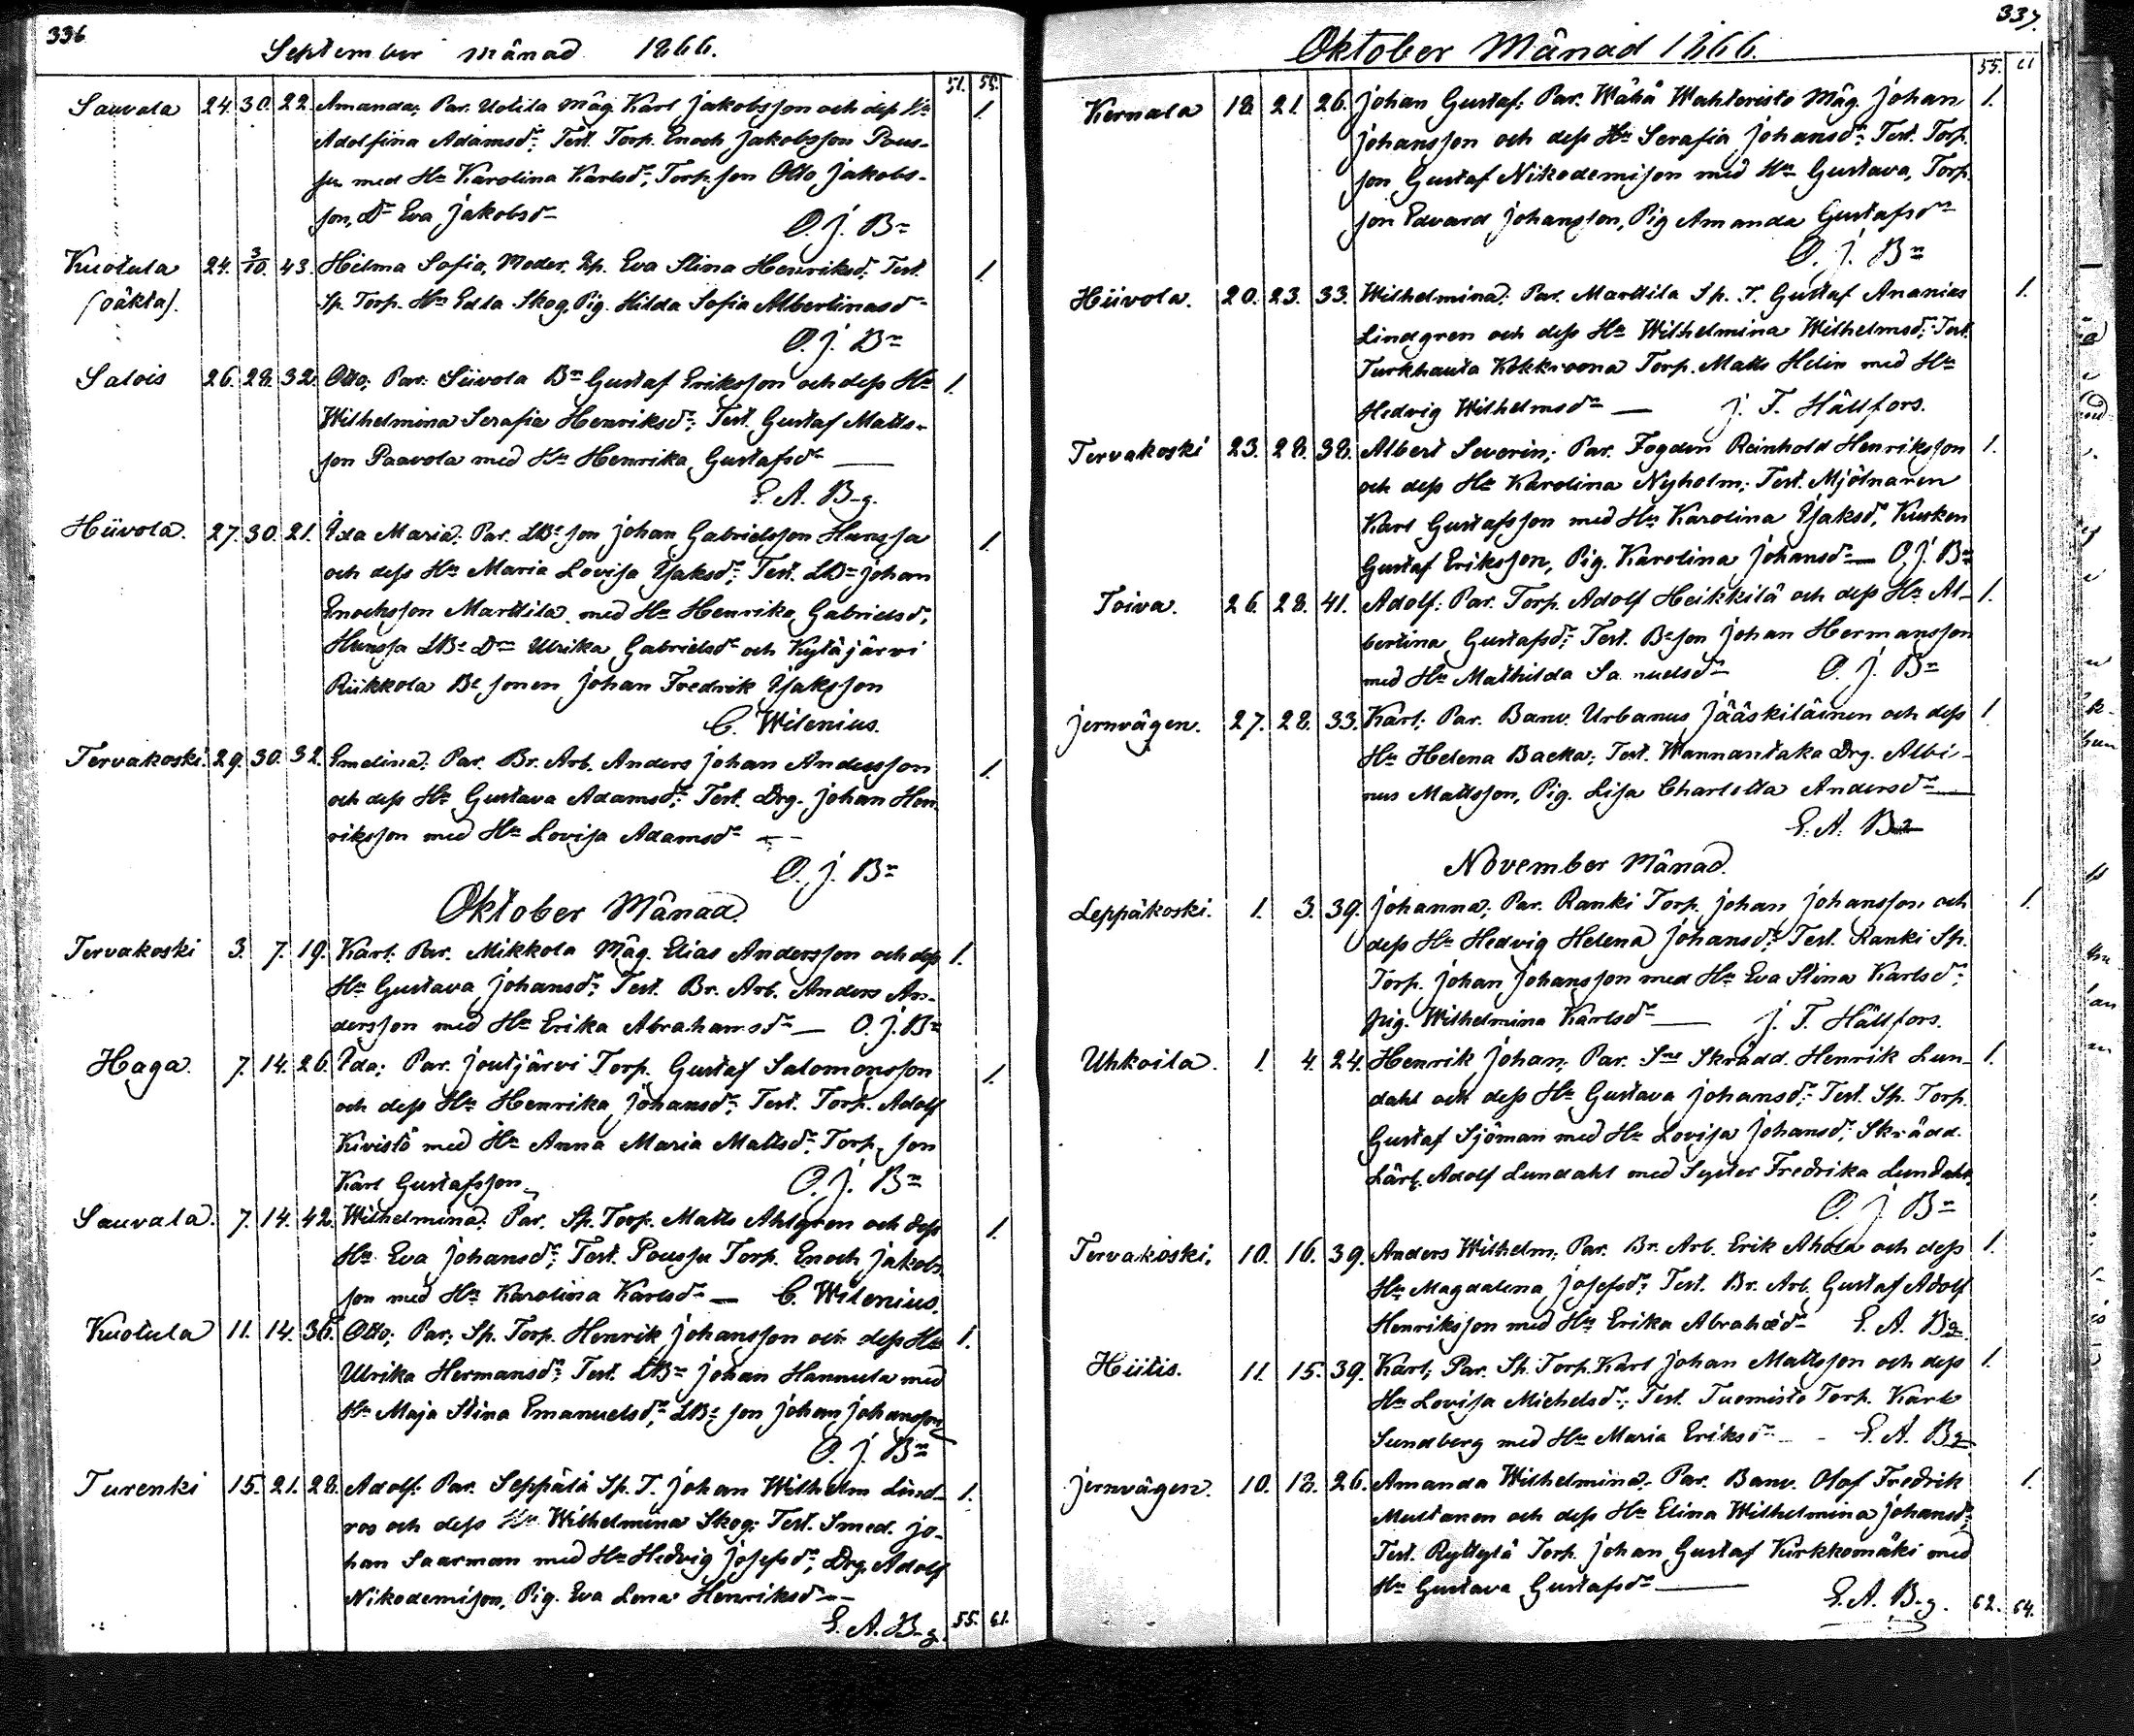 336
September månad 1866.
51. 55.
Sauvala 24. 30. 22. Amanda; Par. Uotila Måg Karl Jakobsson och dess Hu 1.
Adolfina Adamsdr; Test. Torp. Enoch Jakobsson Pous-
su med Hu Karolina Karlsdr, Torp. son Otto Jakobs-
son, Dr Eva Jakobsdr
O. J. Bn
Kuotula 24. 3/10. 43. Hilma Sofia, Moder. Ip. Eva Stina Henriksd; Test. 1.
(oäkta). Sp. Torp. Hu Edla Skog, Pig. Hilda Sofia Albertinasdr
O. J. Bn
Salois 26. 28. 32. Otto; Par: Siivola Bn Gustaf Eriksson och dess Hu 1.
Wilhelmina Serafia Henriksdr; Test. Gustaf Matts-
son Paavola med Hu Henrika Gustafsdr
E. A. B-g.
Hiivola. 27. 30. 21. Ida Maria; Par. LBe son Johan Gabrielsson Hunssa 1.
och dess Hu Maria Lovisa Isaksdr; Test. LBn Johan
Enochsson Marttila med Hu Henrika Gabrielsd,
Hunssa LBe Dr Ulrika Gabrielsdr och Kytäjärvi
Riikkola Be sonen Johan Fredrik Isaksson
C. Wilenius.
Tervakoski. 29. 30. 32. Emelina; Par. Br. Arb. Anders Johan Andersson 1.
och dess Hu Gustava Adamsdr; Test. Drg. Johan Hen-
riksson med Hu Lovisa Adamsdr
O. J. Bn
Oktober Månad.
Tervakoski 3. 7. 19. Karl; Par. Mikkola Måg. Elias Andersson och dess 1.
Hu Gustava Johansdr; Test. Br. Arb. Anders An-
dersson med Hu Erika Abrahamsdr — O. J. Bn
Haga. 7. 14. 26. Ida; Par. Joutjärvi Torp. Gustaf Salomonsson 1.
och dess Hu Henrika Johansdr; Test. Torp. Adolf
Kivistö med Hu Anna Maria Mattsdr, Torp. son
Karl Gustafsson
O. J. Bn
Sauvala. 7. 14. 42. Wilhelmina; Par. Sp. Torp. Matts Ahlgren och dess 1.
Hu Eva Johansdr; Test. Poussu Torp. Enoch Jakobs-
son med Hu Karolina Karlsdr — C. Wilenius.
Kuotula 11. 14. 36. Otto; Par; Sp. Torp. Henrik Johansson och dess Hu 1.
Ulrika Hermansdr; Test. LBn Johan Hannula med
Hu Maja Stina Emanuelsdr, LBe son Johan Johansson
O. J. Bn
Turenki 15. 21. 28. Adolf; Par. Seppälä Sp. T. Johan Wilhelm Lind- 1.
roo och dess Hu Wilhelmina Skog; Test. Smed. Jo-
han Saarman med Hu Hedvig Josefsdr, Drg. Adolf
Nikodemisson, Pig. Eva Lena Henriksdr
E. A. B-g. 55. 61.
337.
Oktober Månad 1866.
55. 61
Kernala 18. 21. 26. Johan Gustaf; Par. Wähä Wahteristo Måg. Johan 1.
Johansson och dess Hu Serafia Johansdr; Test. Torp.
son Gustaf Nikodemisson med Hu Gustava, Torp.
son Edvard Johansson, Pig Amanda Gustafsdr
O. J. Bn
Hiivola. 20. 23. 33. Wilhelmina; Par. Marttila Sp. T. Gustaf Ananias 1.
Lindgren och dess Hu Wilhelmina Wilhelmsd; Test.
Turkhauta Kokkroona Torp. Matts Helin med Hu
Hedvig Wilhelmsdr — J. T. Hällfors.
Tervakoski 23. 28. 38. Albert Severin; Par. Fogden Reinhold Henriksson 1.
och dess Hu Karolina Nyholm; Test. Mjölnaren
Karl Gustafsson med Hu Karolina Isaksdr, Kusken
Gustaf Eriksson, Pig. Karolina Johansdr — O. J. Bn
Toiva. 26. 28. 41. Adolf; Par. Torp. Adolf Heikkilä och dess Hu Al- 1.
bertina Gustafsdr; Test. Be son Johan Hermansson
med Hu Mathilda Samuelsdr
O. J. Bn
Jernvägen. 27. 28. 33. Karl; Par. Banv. Urbanus Jääskiläinen och dess 1.
Hu Helena Backa; Test. Wannantaka Drg. Albi-
nus Mattsson, Pig. Lisa Charlotta Andersdr
E. A. B-g
November Månad.
Leppäkoski. 1. 3. 39. Johanna; Par. Ranki Torp. Johan Johansson och 1.
dess Hu Hedvig Helena Johansdr; Test. Ranki Sp.
Torp. Johan Johansson med Hu Eva Stina Karlsdr;
Pig. Wilhelmina Karlsdr — J. T. Hällfors.
Uhkoila. 1. 4. 24. Henrik Johan; Par. Sne Skrädd. Henrik Lun- 1.
dahl och dess Hu Gustava Johansdr; Test. Sp. Torp.
Gustaf Sjöman med Hu Lovisa Johansdr, Skrädd.
Lärl. Adolf Lundahl med Syster Fredrika Lundahl
O. J. Bn
Tervakoski. 10. 16. 39. Anders Wilhelm; Par. Br. Arb. Erik Ahola och dess 1.
Hu Magdalena Josefsdr; Test. Br. Arb. Gustaf Adolf
Henriksson med Hu Erika Abrahdr E. A. B-g
Hiitis. 11. 15. 39. Karl; Par. Sp. Torp. Karl Johan Mattsson och dess 1.
Hu Lovisa Michelsdr; Test. Tuomisto Torp. Karl
Sundberg med Hu Maria Eriksdr — E. A. B-g
Jernvägen. 10. 18. 26. Amanda Wilhelmina; Par. Banv. Olof Fredrik 1.
Multanen och dess Hu Elina Wilhelmina Johansdr;
Test. Ryttylä Torp. Johan Gustaf Kirkkomäki med
Hu Gustava Gustafsdr
E. A. B-g. 62. 64.